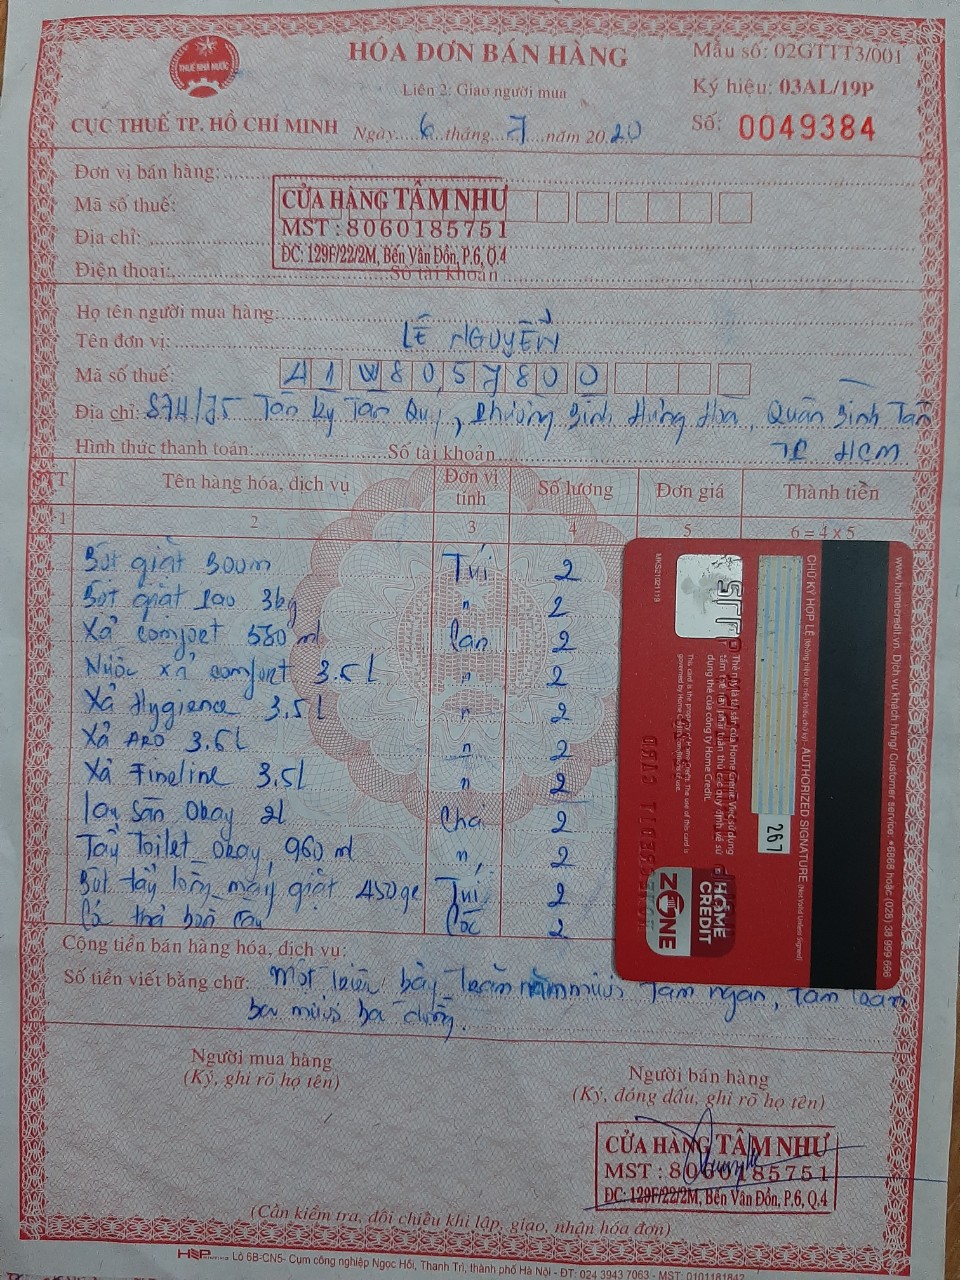 HÓA ĐƠN BÁN HÀNG
Mẫu số: 02GTTT3/001
THUẾ NHÀ NƯỚC
Liên 2: Giao người mua
Ký hiệu: 03AL/19P
CỤC THUẾ TP. HỒ CHÍ MINH
Ngày 6 tháng 7 năm 2020
Số: 0049384
Đơn vị bán hàng:
Mã số thuế:
Địa chỉ:
Điện thoại: Số tài khoản
CỬA HÀNG TÂM NHƯ
MST : 8060185751
ĐC: 129F/22/2M, Bến Vân Đồn, P.6, Q.4
Họ tên người mua hàng:
Tên đơn vị: LÊ NGUYỄN
Mã số thuế: 41W8057800
Địa chỉ: 874/75 Tân Kỳ Tân Quý, Phường Bình Hưng Hòa, Quận Bình Tân
TP HCM
Hình thức thanh toán: Số tài khoản
TT Tên hàng hóa, dịch vụ Đơn vị tính Số lượng Đơn giá Thành tiền
1 2 3 4 5 6 = 4 x 5
Bột giặt Boom Túi 2
Bột giặt 3kg " 2
Xả comfort 580 ml Can 2
Nước xả comfort 3.5 L " 2
Xả Hygience 3.5 L " 2
Xả ARO 3.6 L " 2
Xả Fineline 3.5L " 2
Lau sàn Okay 2l Chai 2
Tẩy Toilet Okay 960 ml " 2
Bột tẩy lồng máy giặt 450gr Túi 2
Cốc thả bồn cầu Cốc 2
Cộng tiền bán hàng hóa, dịch vụ:
Số tiền viết bằng chữ: Một triệu bảy trăm năm mươi tám ngàn, tám trăm
ba mươi ba đồng.
www.homecredit.vn. Dịch vụ khách hàng/ Customer service: *6868 hoặc (028) 38 999 666
CHỮ KÝ HỢP LỆ AUTHORIZED SIGNATURE (Not Valid Unless Signed)
267
Thẻ này là tài sản của Home Credit.
This card is the property of Home Credit. The use of this card is
MK521021119
HOME
CREDIT
ZONE
Người mua hàng
(Ký, ghi rõ họ tên)
Người bán hàng
(Ký, đóng dấu, ghi rõ họ tên)
CỬA HÀNG TÂM NHƯ
MST : 8060185751
ĐC: 129F/22/2M, Bến Vân Đồn, P.6, Q.4
(Cần kiểm tra, đối chiếu khi lập, giao, nhận hóa đơn)
Lô 6B-CN5- Cụm công nghiệp Ngọc Hồi, Thanh Trì, thành phố Hà Nội - ĐT: 024 3943 7063 - MST: 0101181842